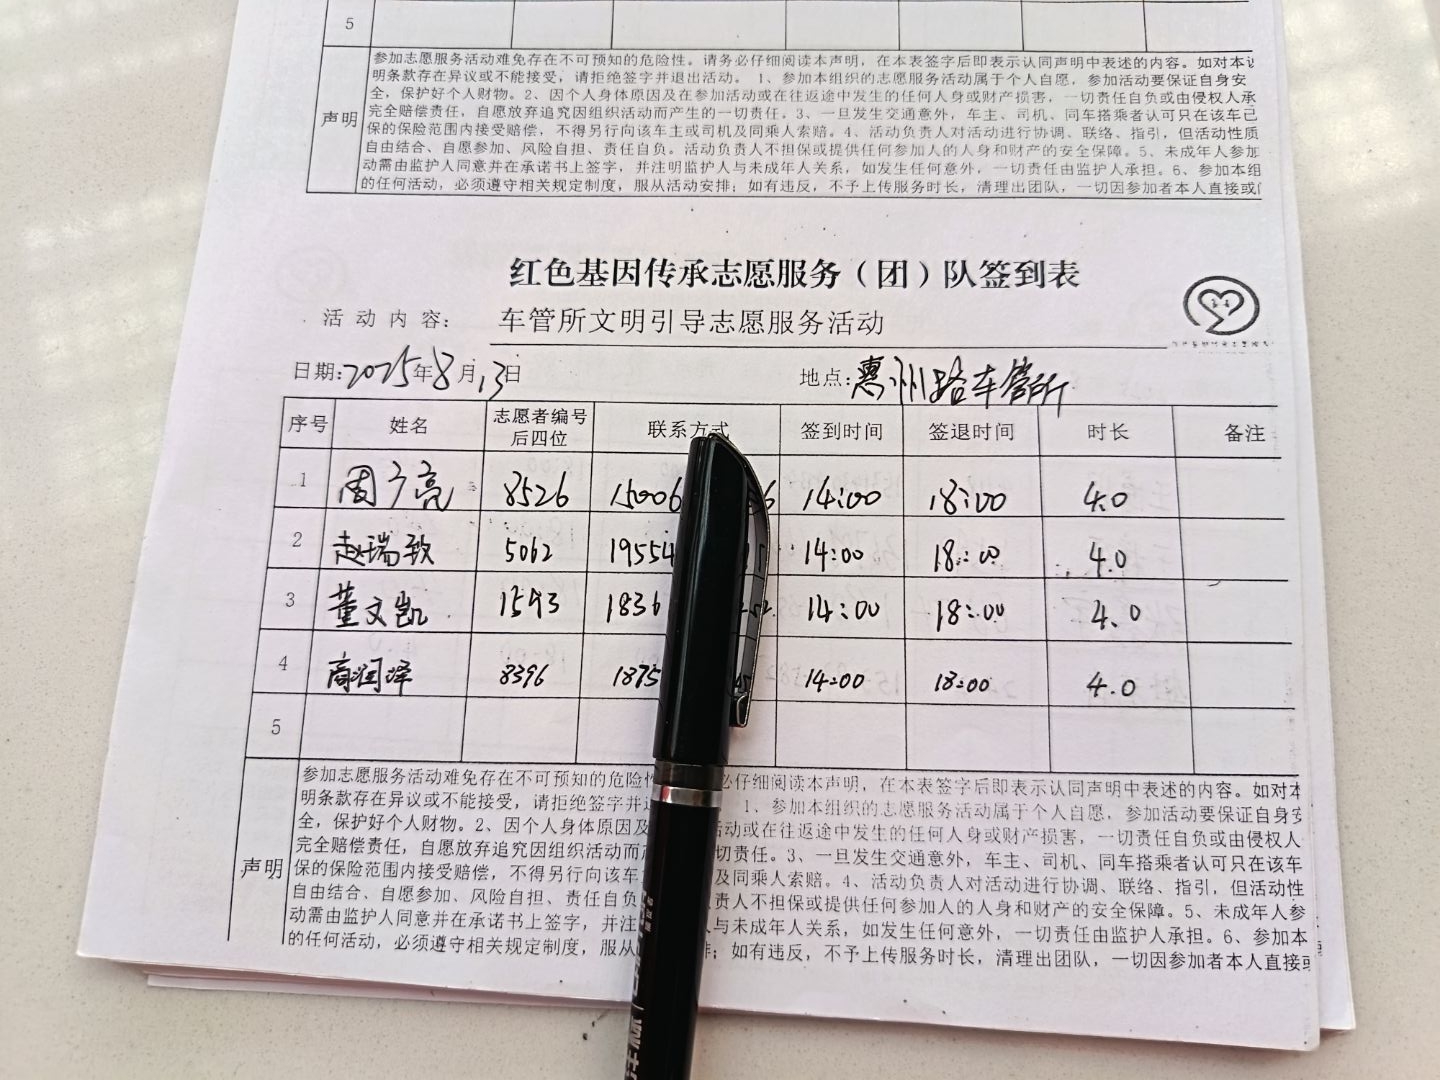 5
参加志愿服务活动难免存在不可预知的危险性。请务必仔细阅读本声明，在本表签字后即表示认同声明中表述的内容。如对本
明条款存在异议或不能接受，请拒绝签字并退出活动。 1、参加本组织的志愿服务活动属于个人自愿，参加活动要保证自身安
全，保护好个人财物。2、因个人身体原因及在参加活动或在往返途中发生的任何人身或财产损害，一切责任自负或由侵权人承
声明 完全赔偿责任，自愿放弃追究因组织活动而产生的一切责任。3、一旦发生交通意外，车主、司机、同车搭乘者认可只在该车已
保的保险范围内接受赔偿，不得另行向该车主或司机及同乘人索赔。4、活动负责人对活动进行协调、联络、指引，但活动性质
自由结合、自愿参加、风险自担、责任自负。活动负责人不担保或提供任何参加人的人身和财产的安全保障。5、未成年人参加
动需由监护人同意并在承诺书上签字，并注明监护人与未成年人关系，如发生任何意外，一切责任由监护人承担。6、参加本组
的任何活动，必须遵守相关规定制度，服从活动安排；如有违反，不予上传服务时长，清理出团队，一切因参加者本人直接或
红色基因传承志愿服务（团）队签到表
活动内容： 车管所文明引导志愿服务活动
日期：2025年8月13日 地点：惠州路车管所
序号 姓名 志愿者编号后四位 联系方式 签到时间 签退时间 时长 备注
1 周广亮 8526 15006 6 14:00 18:00 4.0
2 赵瑞致 5062 19554 14:00 18:00 4.0
3 董文凯 1593 1836 52 14:00 18:00 4.0
4 高润泽 8396 1875 45 14:00 18:00 4.0
5
参加志愿服务活动难免存在不可预知的危险 必仔细阅读本声明，在本表签字后即表示认同声明中表述的内容。如对本
明条款存在异议或不能接受，请拒绝签字并 1、参加本组织的志愿服务活动属于个人自愿，参加活动要保证自身安
全，保护好个人财物。2、因个人身体原因及 活动或在往返途中发生的任何人身或财产损害，一切责任自负或由侵权人
完全赔偿责任，自愿放弃追究因组织活动而 切责任。3、一旦发生交通意外，车主、司机、同车搭乘者认可只在该车
声明 保的保险范围内接受赔偿，不得另行向该车 及同乘人索赔。4、活动负责人对活动进行协调、联络、指引，但活动性
自由结合、自愿参加、风险自担、责任自负 责人不担保或提供任何参加人的人身和财产的安全保障。5、未成年人参
动需由监护人同意并在承诺书上签字，并注 与未成年人关系，如发生任何意外，一切责任由监护人承担。6、参加本
的任何活动，必须遵守相关规定制度，服从 排；如有违反，不予上传服务时长，清理出团队，一切因参加者本人直接